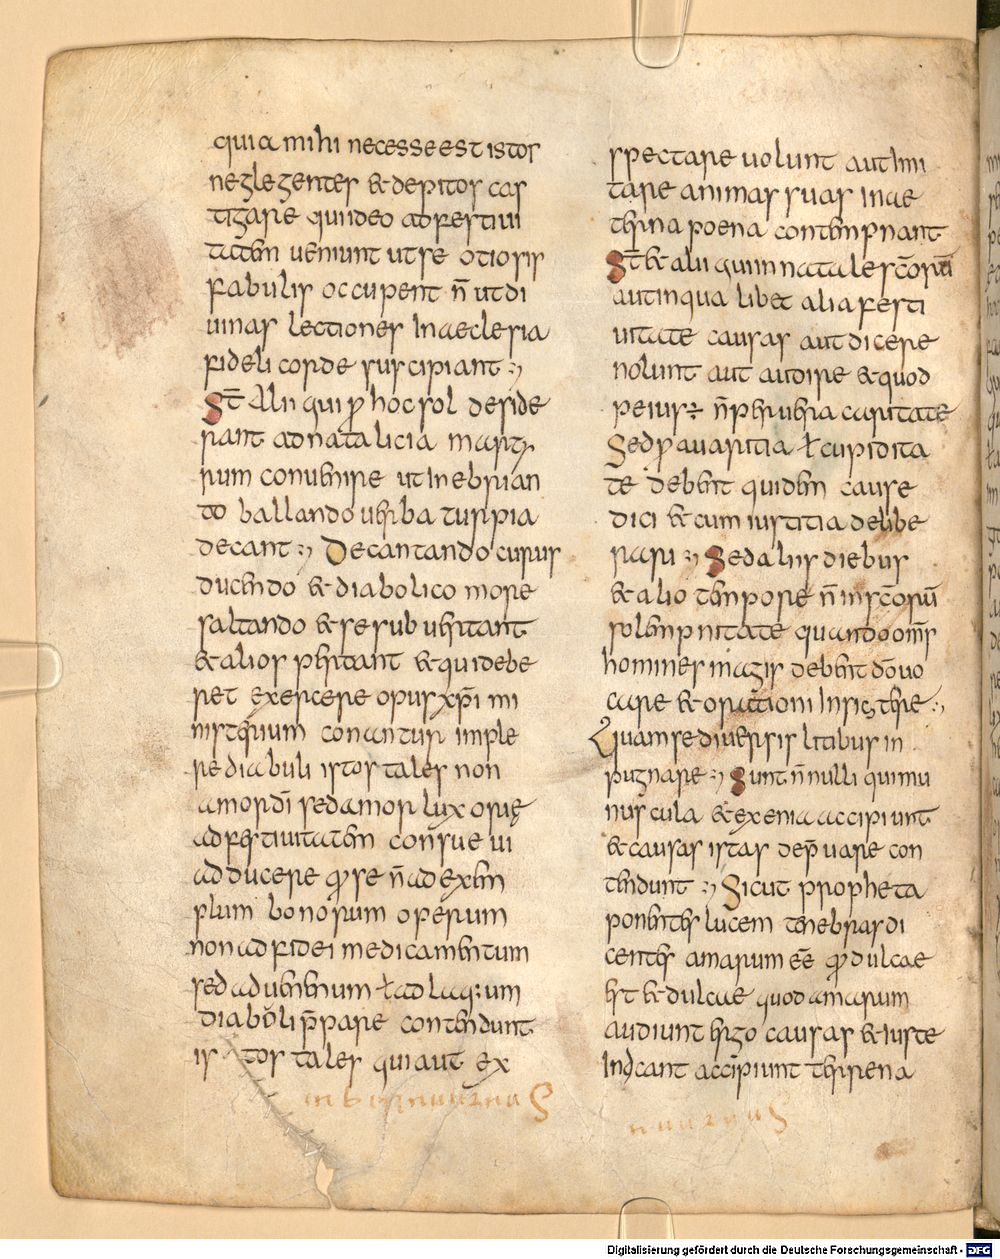 quia mihi necesse est istos
neglegentes & depitos cas
tigare quiideo adfestiui
tatem ueniunt utse otiosis
fabulis occupent n̄ ut di
uinas lectiones In aeclesia
fideli corde suscipiant :,
S̄t Alii qui ꝓ hoc sol deside
rant ad natalicia martꝝ
rum conuenire ut Inebrian
to ballando uerba turpia
decant :, Decantando curus
ducendo & diabolico more
saltando & se subuertant
& alios pheritant & qui debe
ret exercere opus xp̄i mi
nisterium conantur imple
re diabuli istos tales non
amor dī sed amor luxorię
ad festiuitatem consueui
adducere ꝓ se n̄ ad exem
plum bonorum operum
non ad fidei medicamentum
sed ad uenenum ł ad laq:um
diaboli p̄parare contendunt
is tos tales qui aut ex
spectare uolunt aut Imi
tare animas suas In ae
therna poena contempnant
S̄t & alii qui in natale sc̄orū
aut in qua libet alia festi
uitate causas aut dicere
nolunt aut audire & quod
peius ÷ n̄ pher uera caritate
Sed ꝓ auaritia ł cupidita
te debent quidem cause
dici & cum iustitia delibe
rari :, Sed aliis diebus
& alio tempore n̄ in sc̄orū
solempnitate quando om̄s
homines magis debent dō uo
care & orationi Insistere :,
Quam se diuersis litibus in
pugnare :, Sunt n̄ nulli qui mu
nuscula & exenia accipiunt
& causas istas dep̄uare con
tendunt :, Sicut propheta
ponentes lucem tenebras di
centes amarum eē̄ quod dulcae
est & dulcae quod amarum
audiunt ergo causas & iuste
Iudicant accipiunt therrena